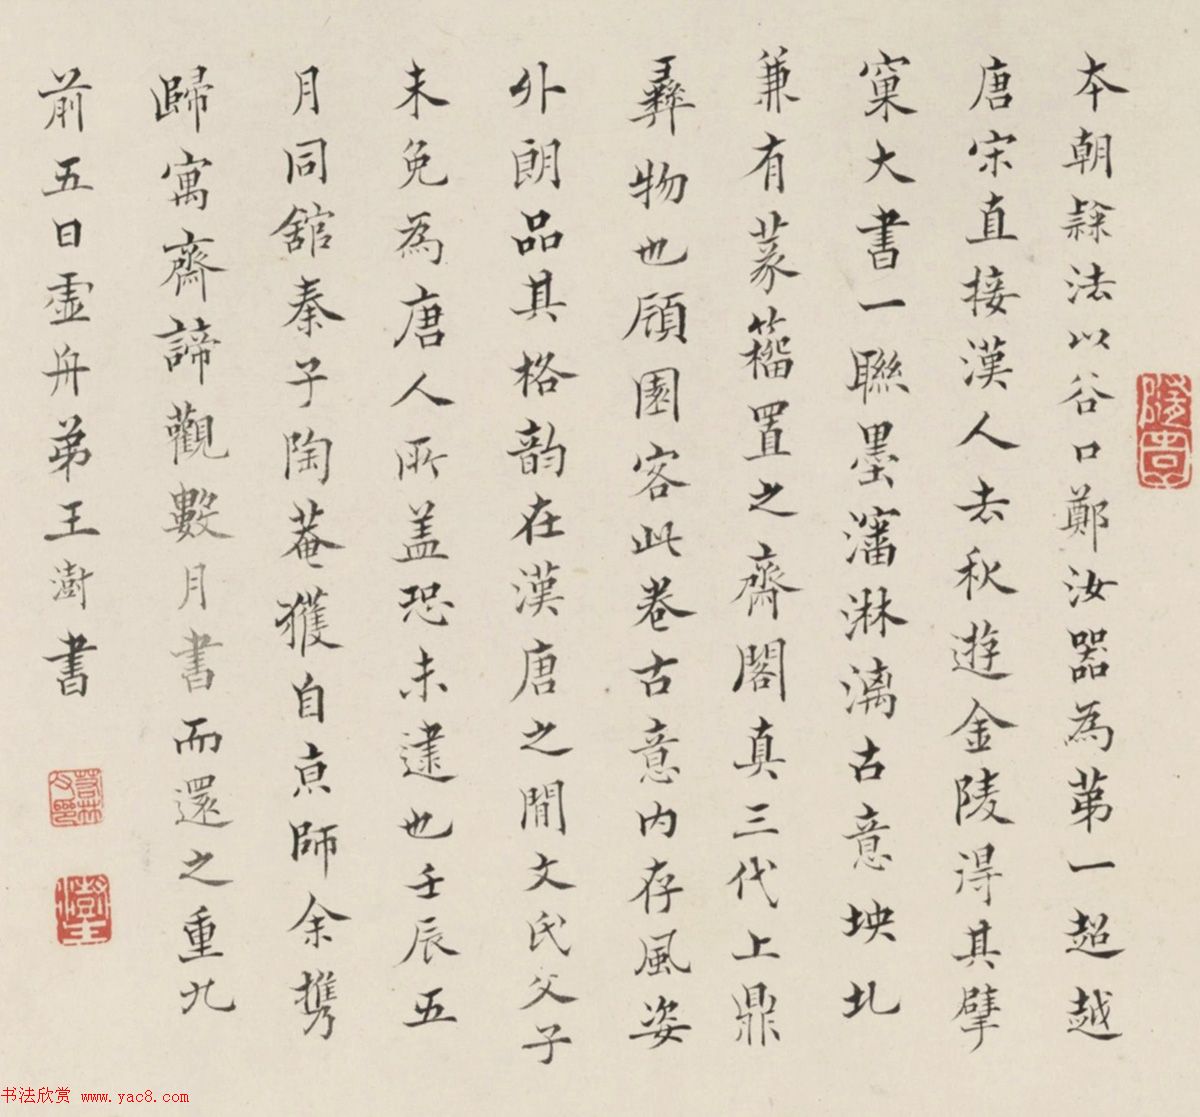 本朝隸法以谷口鄭汝器為第一超越
唐宋直接漢人去秋遊金陵得其擘
窠大書一聯墨瀋淋漓古意坱圠
兼有篆籀置之齋閣真三代上鼎
彝物也頋園客此卷古意内存風姿
外朗品其格韵在漢唐之間文氏父子
未免為唐人所盖恐未逮也壬辰五
月同舘秦子陶菴獲自京師余携
歸寓齋諦觀數月書而還之重九
前五日虚舟弟王澍書
书法欣赏 www.yac8.com